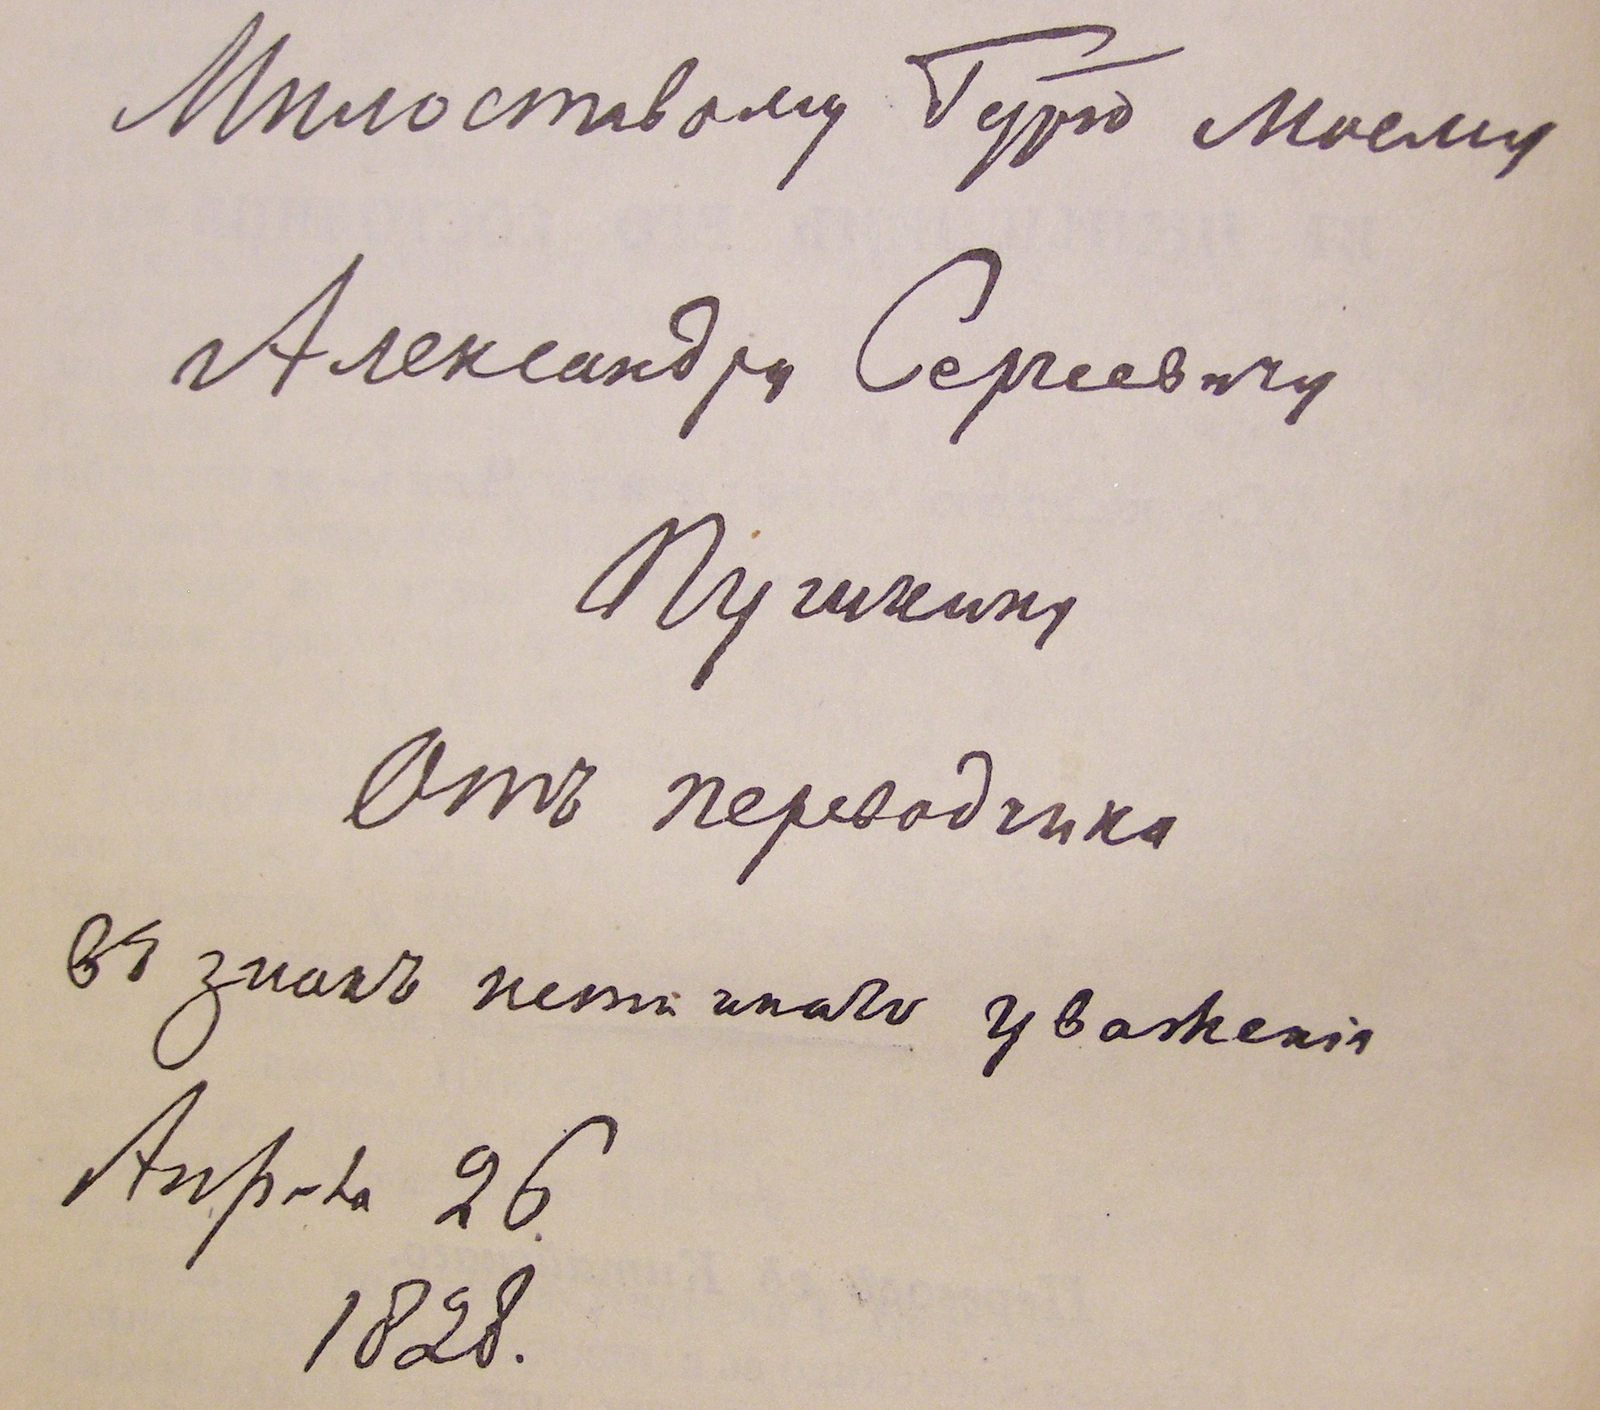 Милостивому Гдрю моему
Александру Сергеевичу
Пушкину
Отъ переводчика
въ знакъ истиннаго уваженія
Апр-ля 26.
1828.